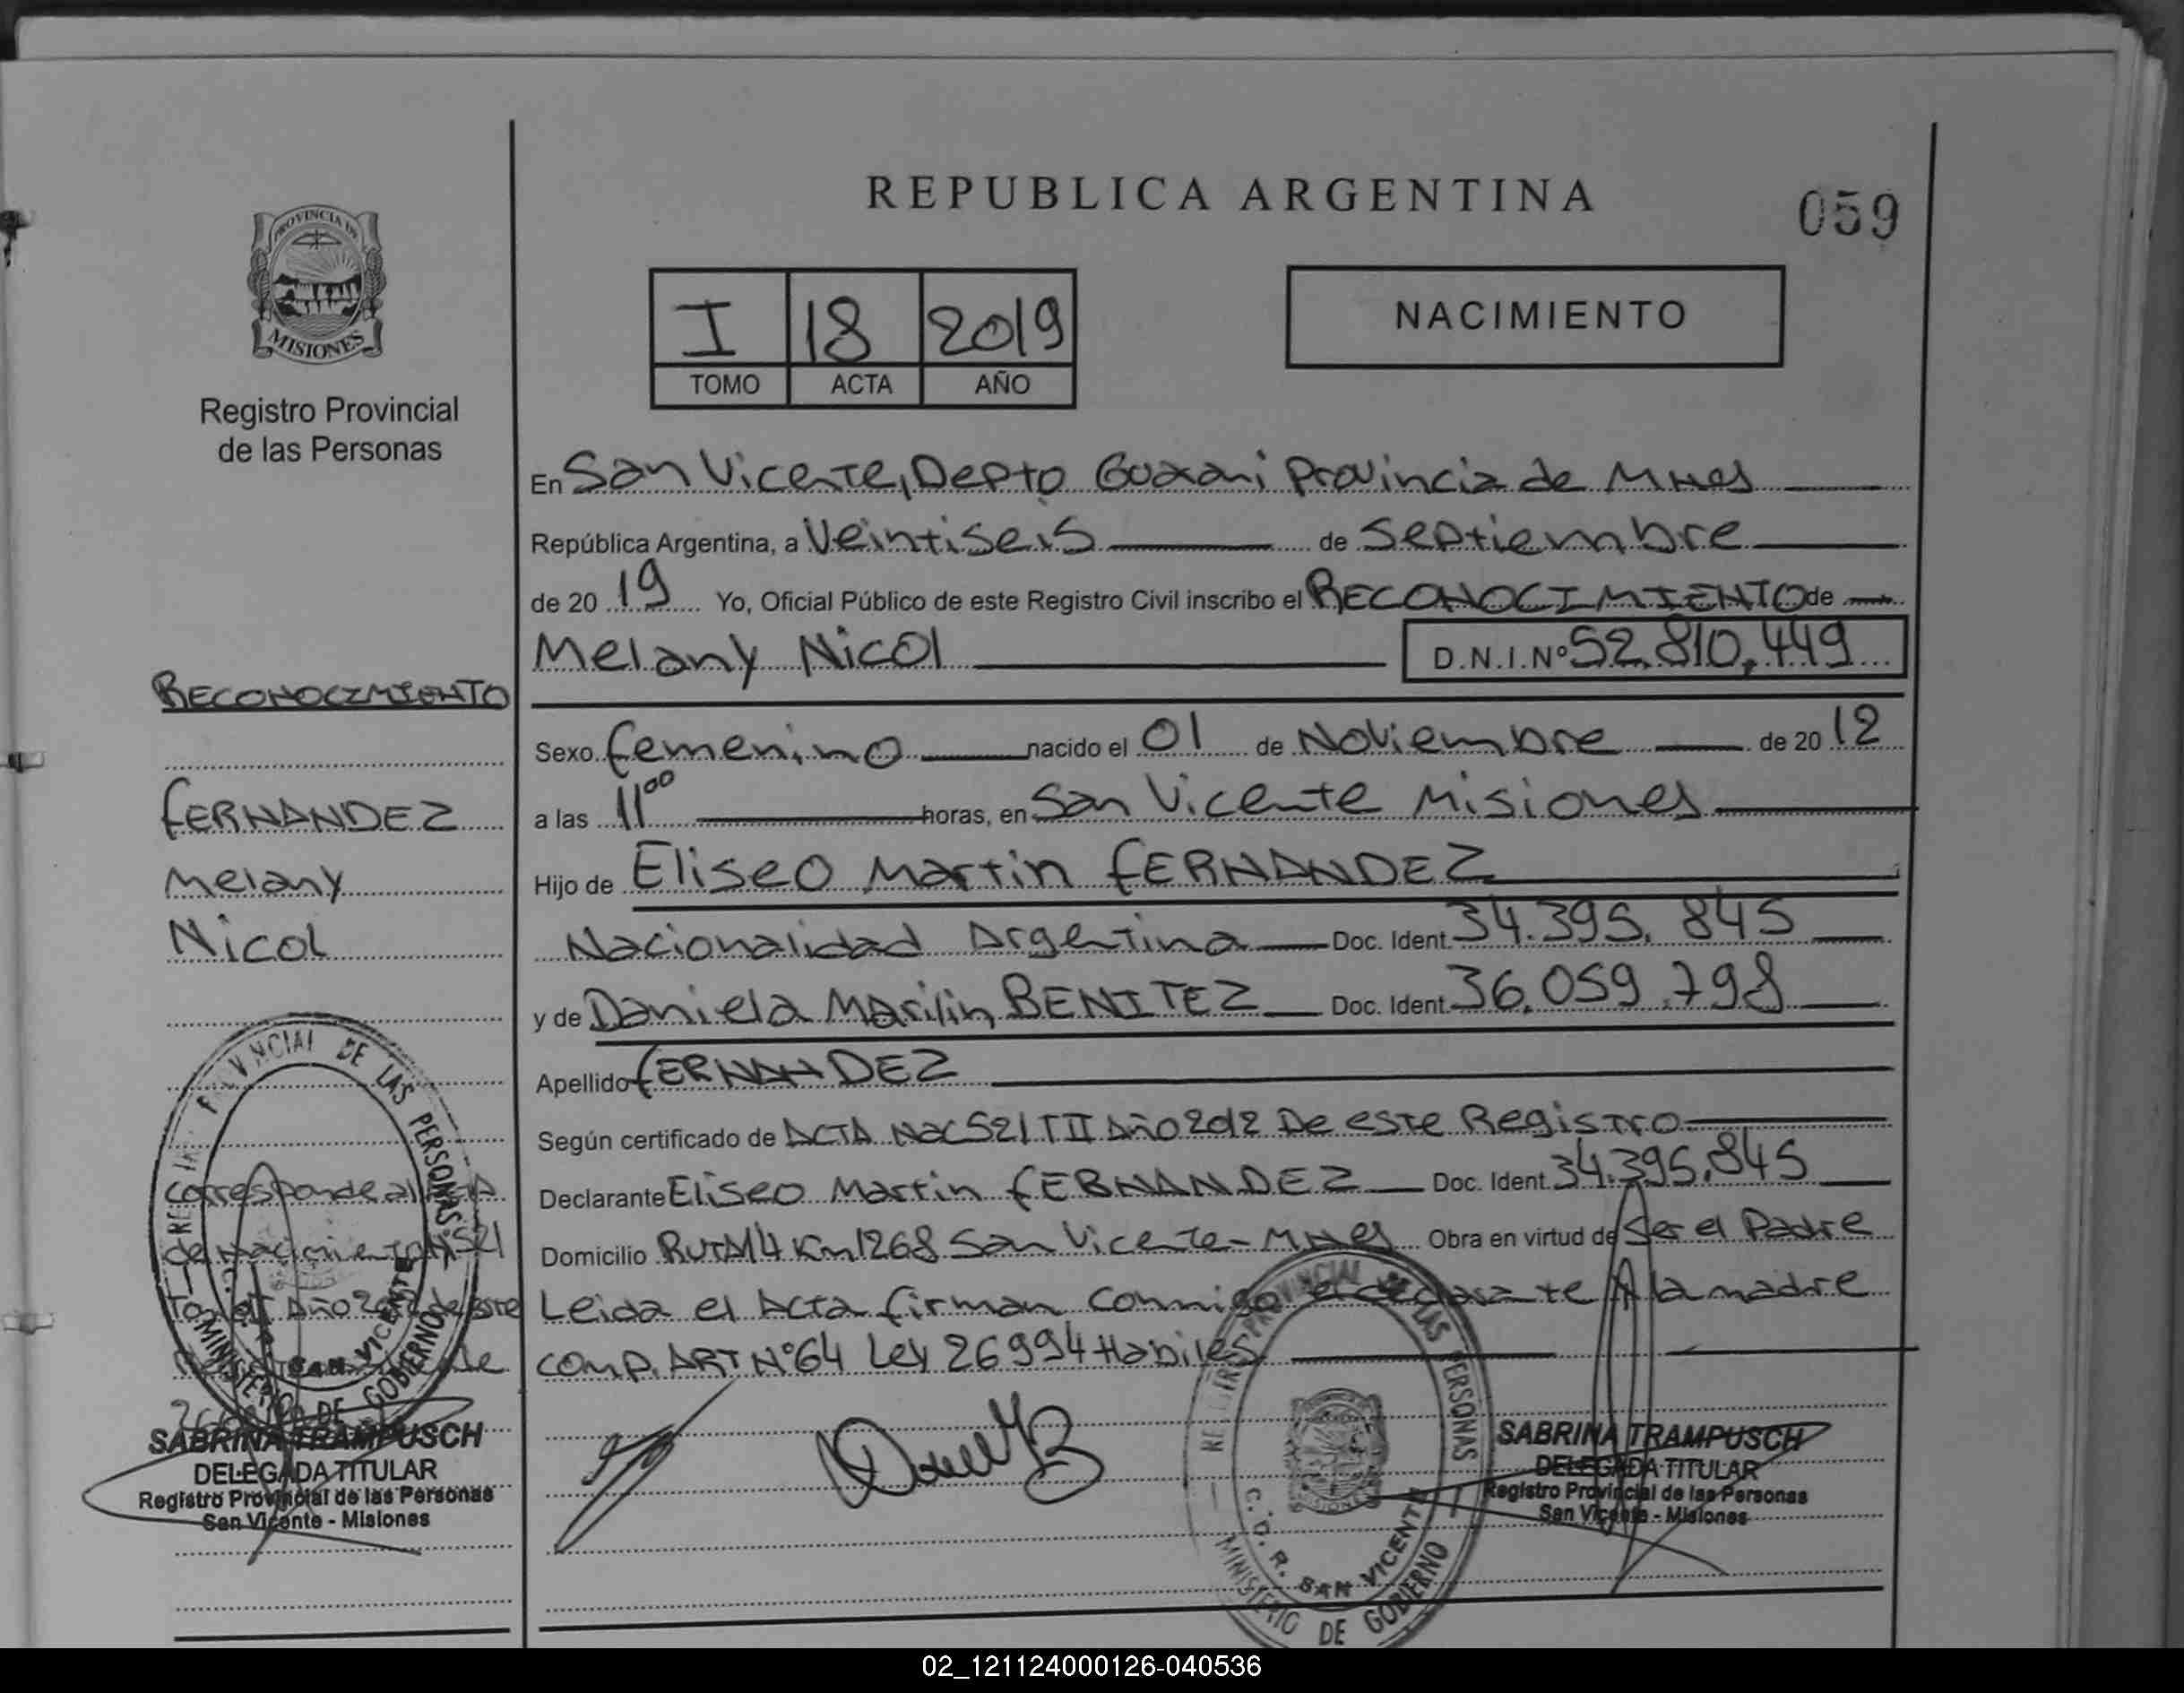 REPUBLICA ARGENTINA
059
PROVINCIA DE
MISIONES
Registro Provincial
de las Personas
I 18 2019
TOMO ACTA AÑO
NACIMIENTO
En San Vicente, Depto Guarani Provincia de Mnes
República Argentina, a Veintiseis de Septiembre
de 20 19 Yo, Oficial Público de este Registro Civil inscribo el RECONOCIMIENTO de
Melany Nicol D.N.I.Nº 52.810.449
Sexo femenino nacido el 01 de Noviembre de 20 12
a las 11⁰⁰ horas, en San Vicente Misiones
Hijo de Eliseo Martin FERNANDEZ
Nacionalidad Argentina Doc. Ident. 34.395.845
y de Daniela Marilin BENITEZ Doc. Ident. 36.059.798
Apellido FERNANDEZ
Según certificado de ACTA Nac 521 T II Año 2012 De este Registro
Declarante Eliseo Martin FERNANDEZ Doc. Ident. 34.395.845
Domicilio RUTA 14 Km 1268 San Vicente - Mnes Obra en virtud de Ser el Padre
Leida el Acta firman conmigo el declarante la madre
comp. ART Nº 64 Ley 26994 Habiles
RECONOCIMIENTO
FERNANDEZ
Melany
Nicol
corresponde al
de Nacimiento Nº 521
Tomo II Año 2012 de este
PROVINCIAL DE LAS PERSONAS
SAN VICENTE
MINISTERIO DE GOBIERNO
SABRINA TRAMPUSCH
DELEGADA TITULAR
Registro Provincial de las Personas
San Vicente - Misiones
PROVINCIAL DE LAS PERSONAS
C. D. R. SAN VICENTE
MINISTERIO DE GOBIERNO
SABRINA TRAMPUSCH
DELEGADA TITULAR
Registro Provincial de las Personas
San Vicente - Misiones
02_121124000126-040536